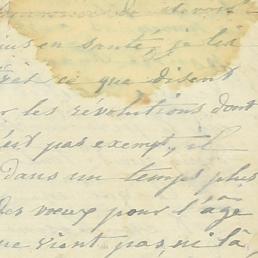 en santé, je lis
ce que disent
les révolutions dont
est pas exempt, il
dans un temps plus
des vœux pour l'âge
ne vient pas, ni là